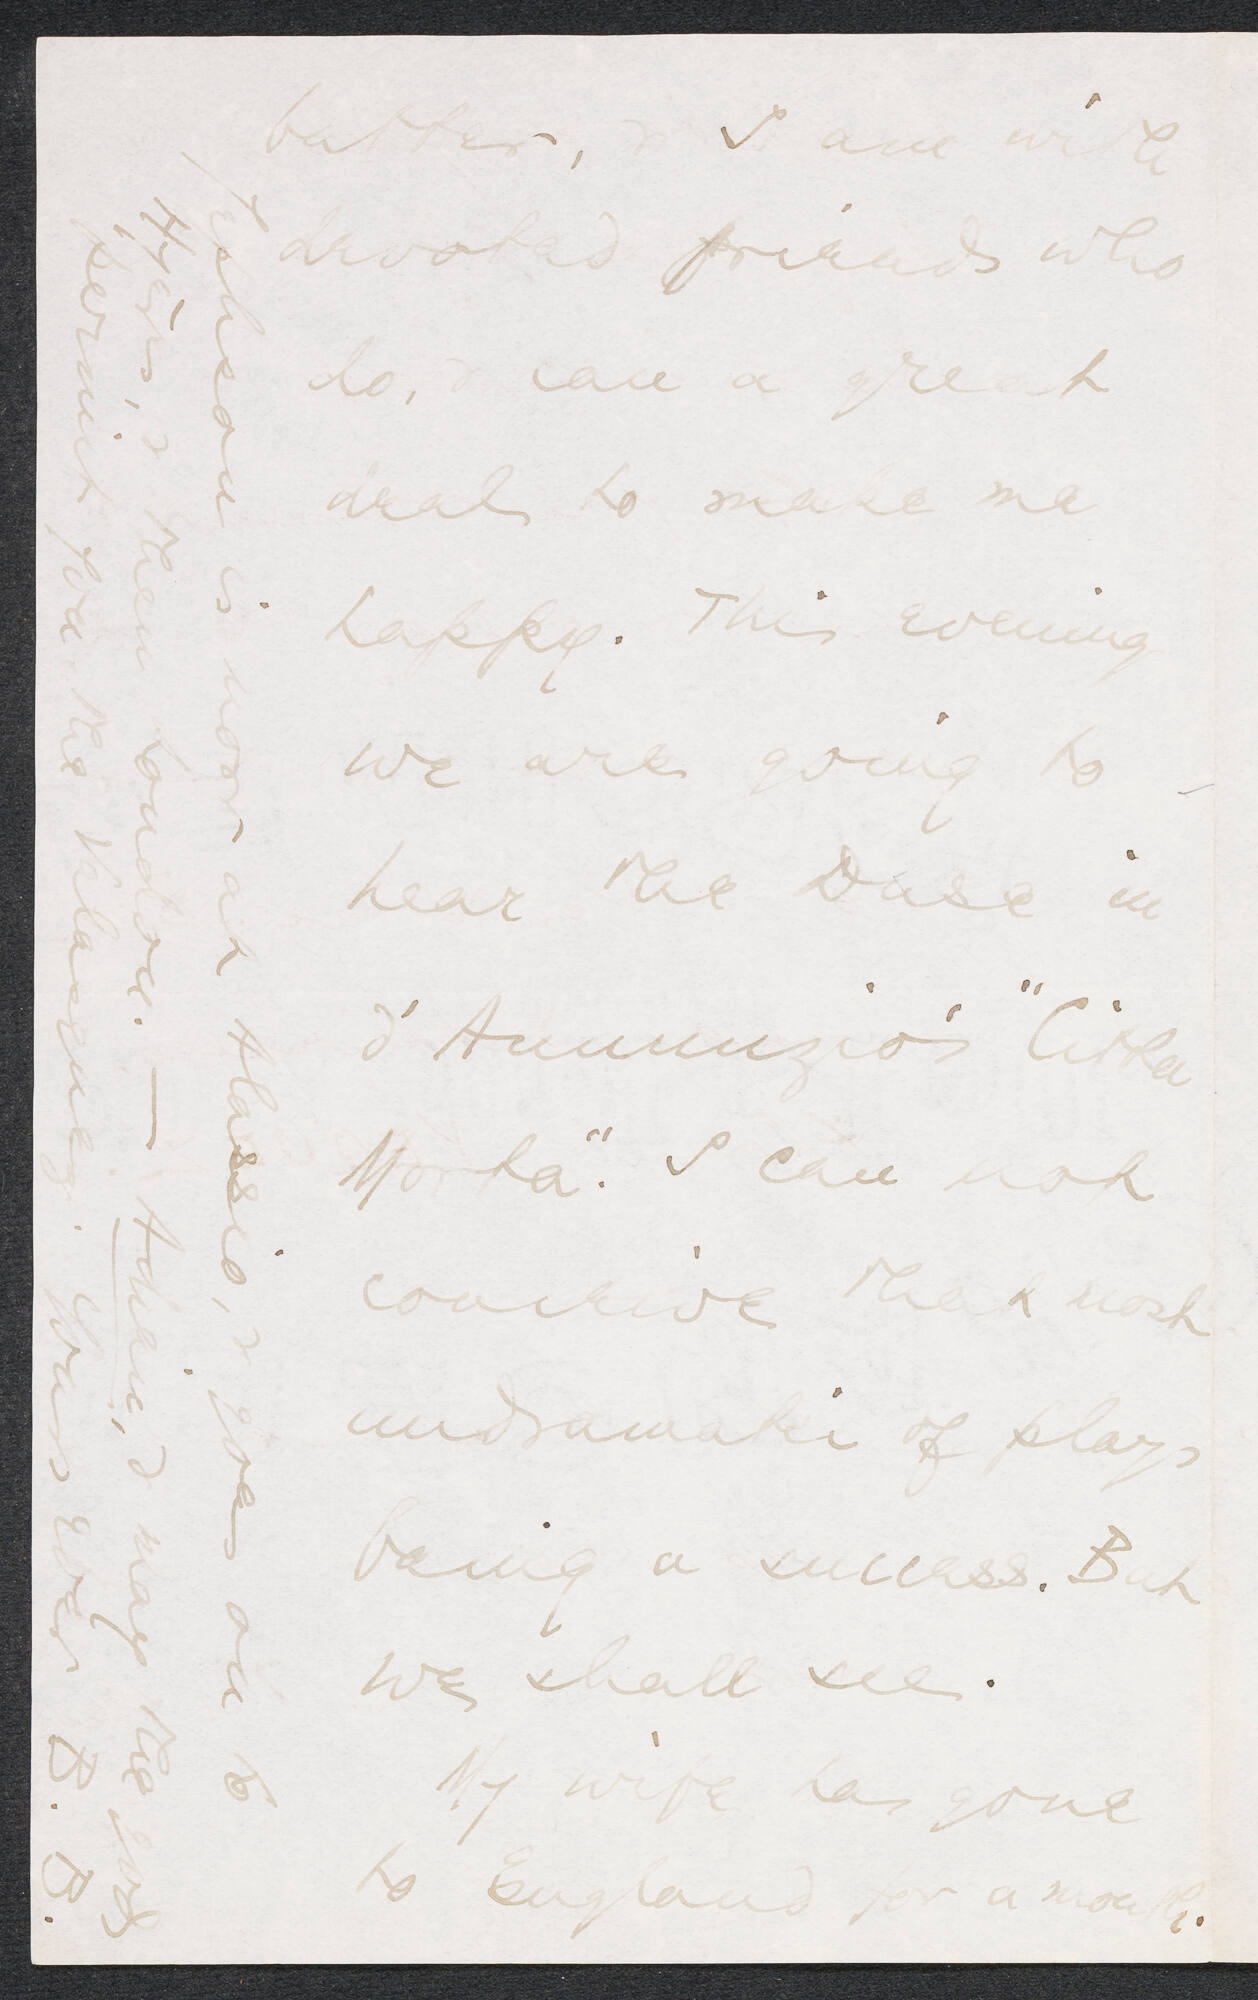 better, & I am with
devoted friends who
do, & can a great
deal to make me
happy. This evening
we are going to
hear the Duse in
d'Annunzio's "Citta
Morta". I can not
conceive that most
undramatic of plays
being a success. But
we shall see.
My wife has gone
to England for a month.
is now at Alassio, & goes on to
Hyères, & then London. — Adieu, & may the gods
permit you the Velasquez. Yours ever B. B.